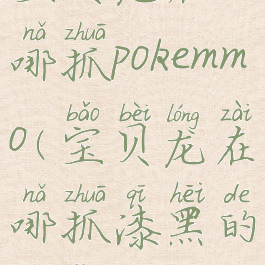 nǎ zhuā
哪抓pokemm
bǎo bèi lóng zài
o(宝贝龙在
nǎ zhuā qī hēi de
哪抓漆黑的